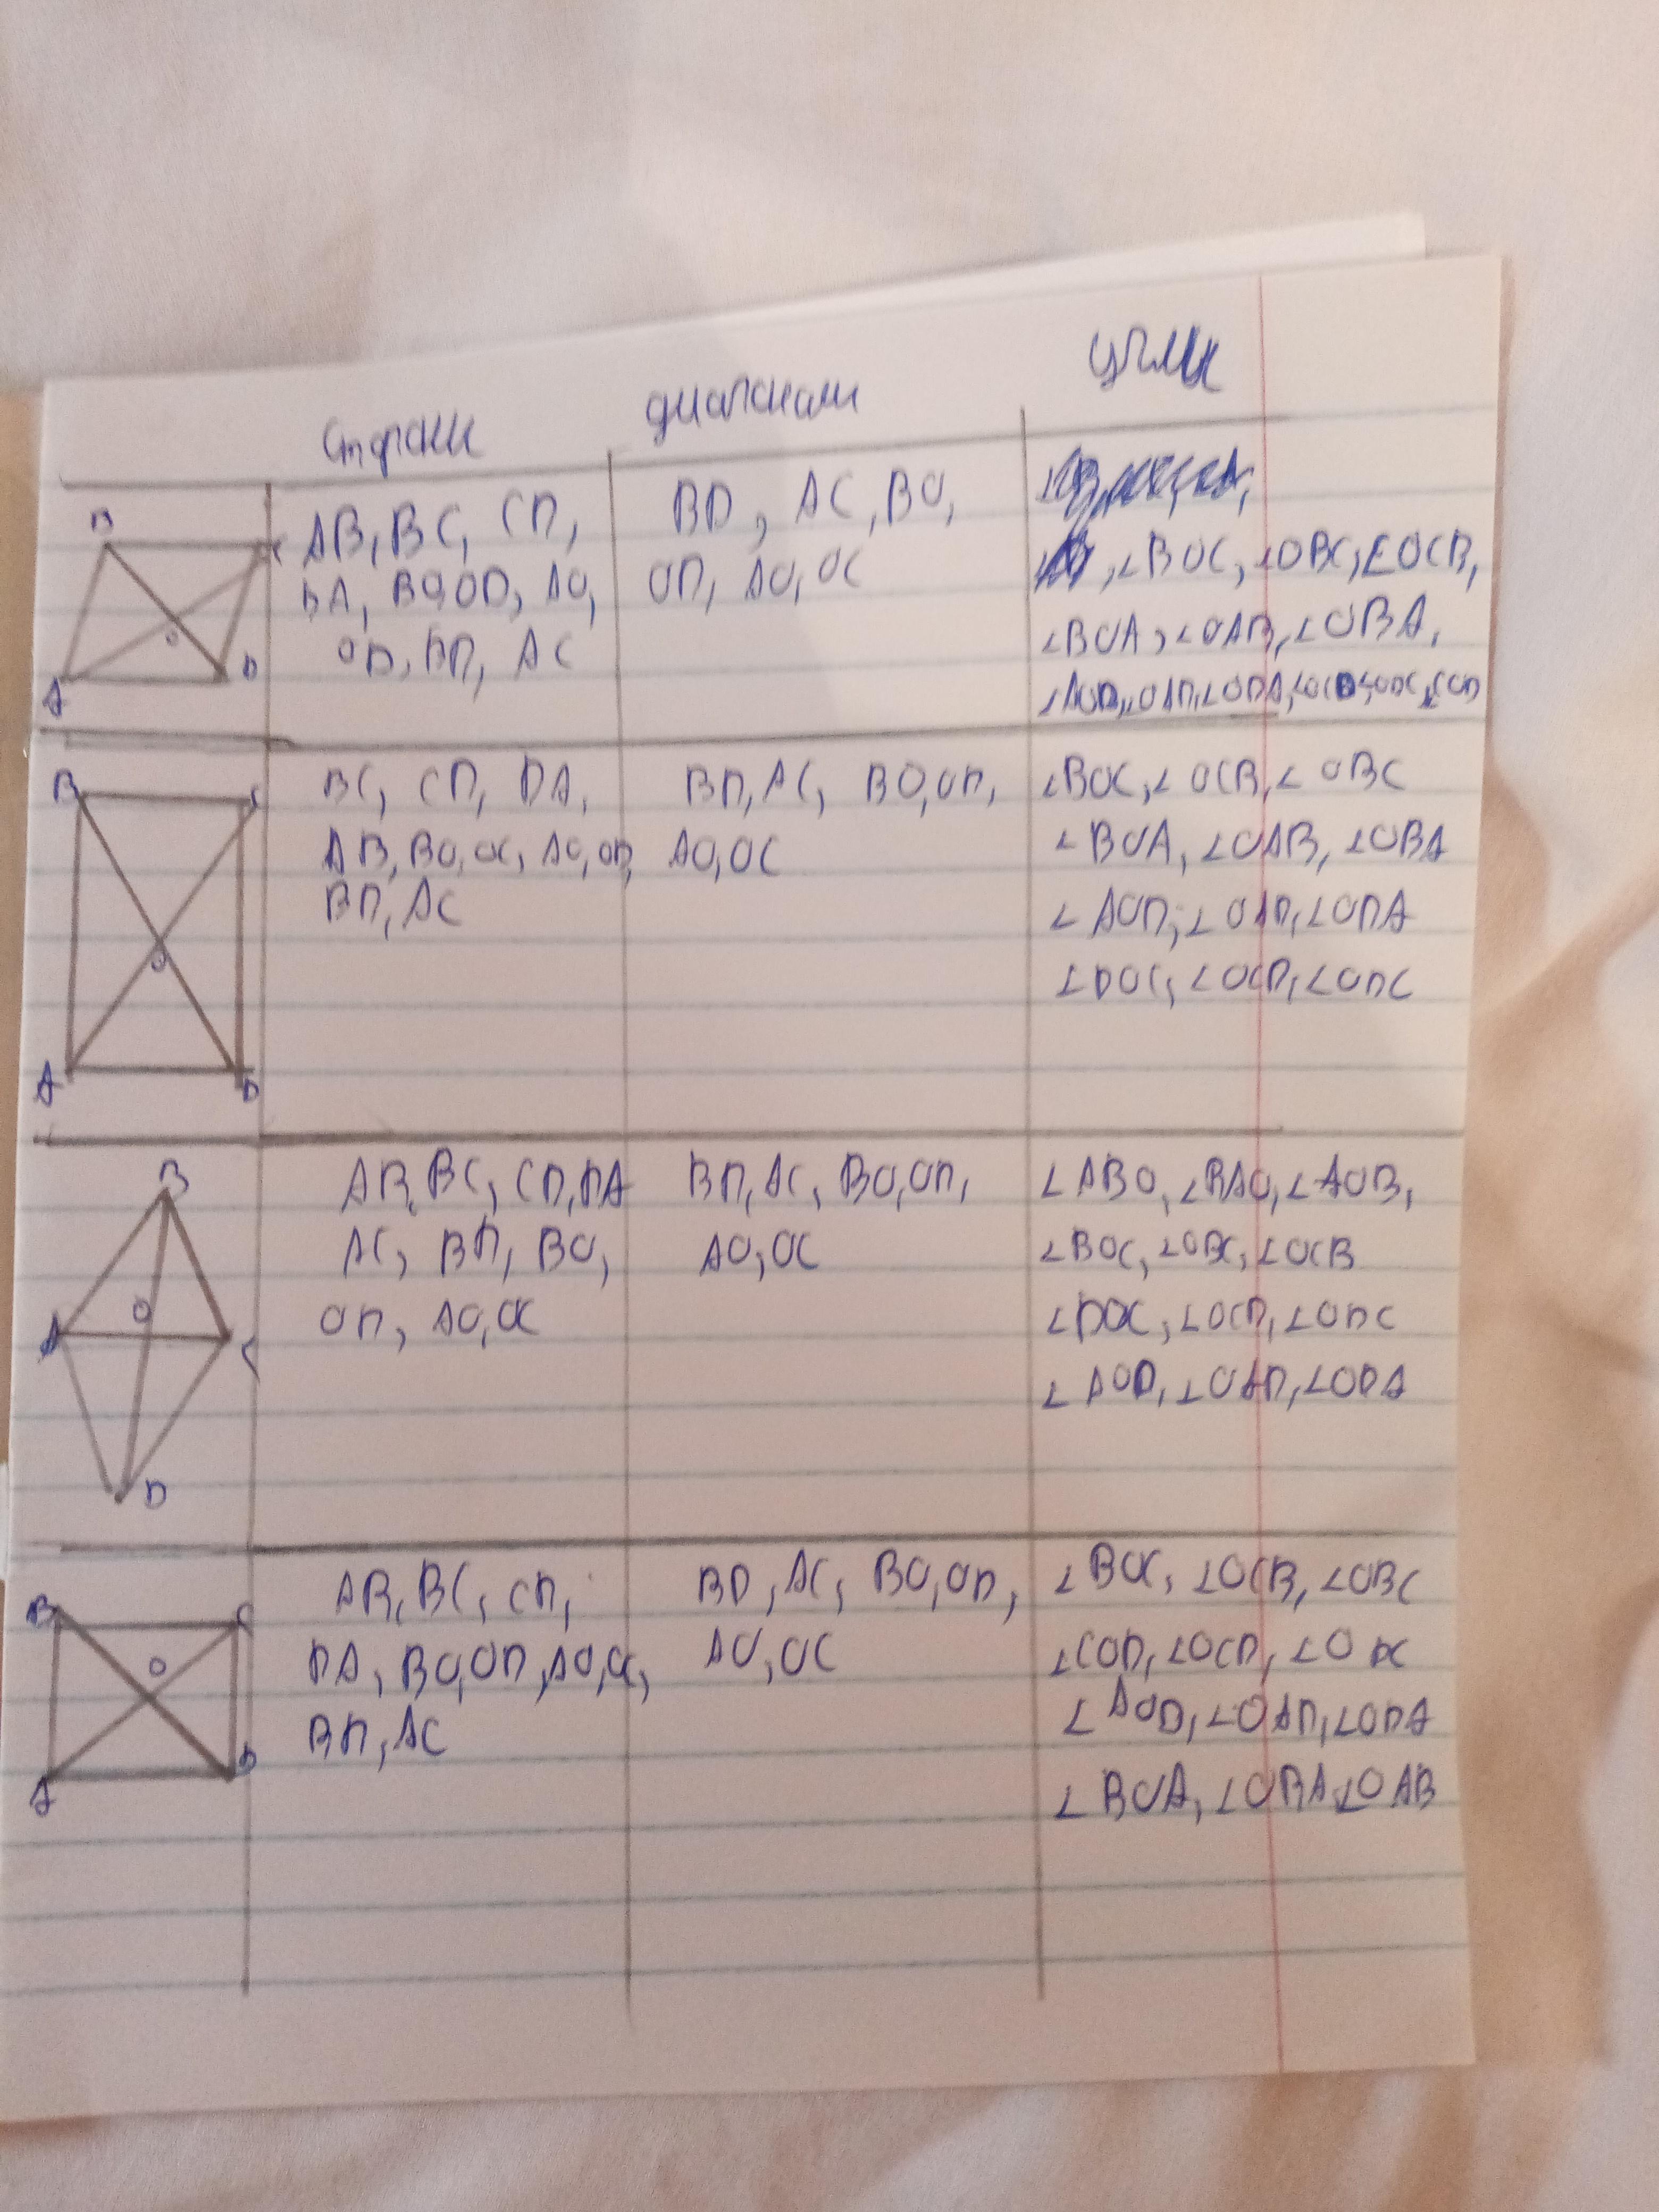 стораны диагонали углы
B C A D O
AB, BC, CD,
DA, BO, OD, AO,
OD, BD, AC
BD, AC, BO,
OD, AO, OC
∠BOC, ∠OBC, ∠OCB,
∠BOA, ∠OAB, ∠OBA,
∠AOD, ∠OAD, ∠ODA, ∠OCD, ∠ODC, ∠COD
B C A D O
BC, CD, DA,
AB, BO, OC, AO, OD,
BD, AC
BD, AC, BO, OD,
AO, OC
∠BOC, ∠OCB, ∠OBC
∠BOA, ∠OAB, ∠OBA
∠AOD, ∠OAD, ∠ODA
∠DOC, ∠OCD, ∠ODC
B A O C D
AB, BC, CD, DA
AC, BD, BO,
OD, AO, OC
BD, AC, BO, OD,
AO, OC
∠ABO, ∠BAO, ∠AOB,
∠BOC, ∠OBC, ∠OCB
∠DOC, ∠OCD, ∠ODC
∠AOD, ∠OAD, ∠ODA
B C O A D
AB, BC, CD,
DA, BO, OD, AO, OC,
BD, AC
BD, AC, BO, OD,
AO, OC
∠BOC, ∠OCB, ∠OBC
∠COD, ∠OCD, ∠ODC
∠AOD, ∠OAD, ∠ODA
∠BOA, ∠OBA, ∠OAB